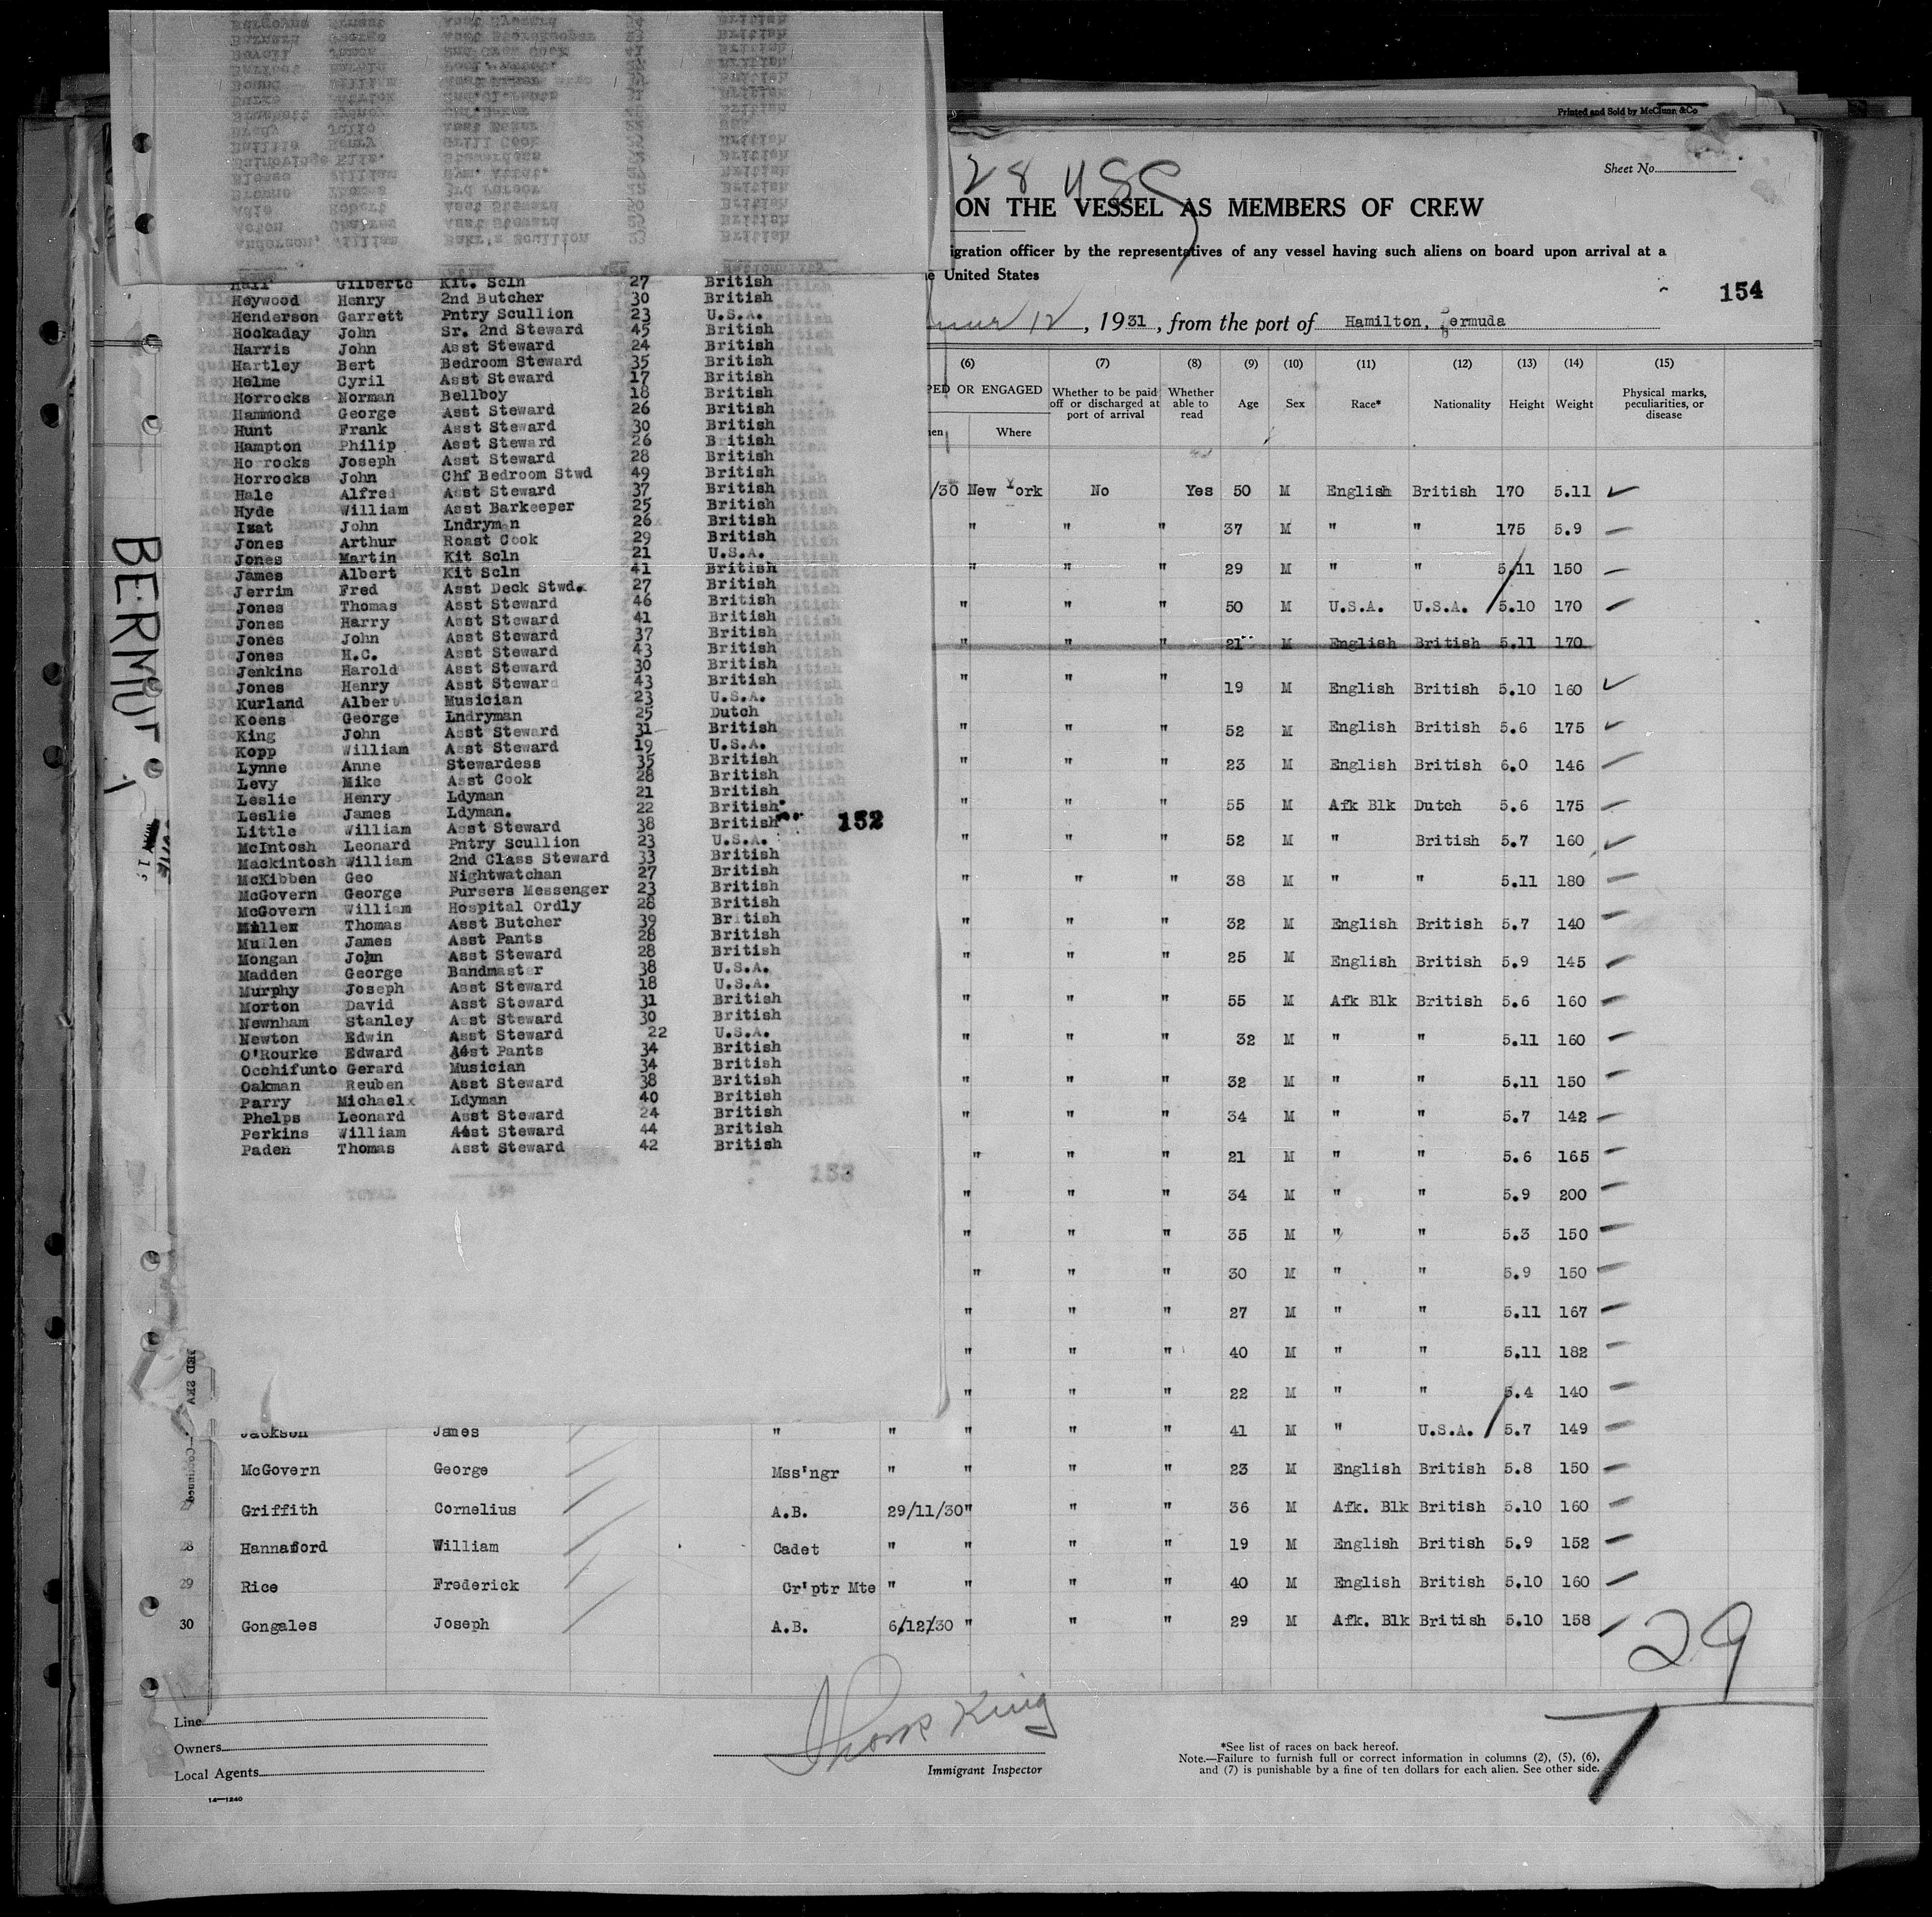 Printed and Sold by McClunn & Co
Sheet No.
28 USS
ON THE VESSEL AS MEMBERS OF CREW
igration officer by the representatives of any vessel having such aliens on board upon arrival at a
e United States
154
12, 1931, from the port of Hamilton, Bermuda
(6) (7) (8) (9) (10) (11) (12) (13) (14) (15)
PED OR ENGAGED Whether to be paid off or discharged at port of arrival Whether able to read Age Sex Race* Nationality Height Weight Physical marks, peculiarities, or disease
Where
Hall Gilberto Kit. Scln 27 British
Heywood Henry 2nd Butcher 30 British
Henderson Garrett Pntry Scullion 23 U.S.A.
Hockaday John Sr. 2nd Steward 45 British
Harris John Asst Steward 24 British
Hartley Bert Bedroom Steward 35 British
Helme Cyril Asst Steward 17 British
Horrocks Norman Bellboy 18 British
Hammond George Asst Steward 26 British
Hunt Frank Asst Steward 30 British
Hampton Philip Asst Steward 26 British
Horrocks Joseph Asst Steward 28 British
Horrocks John Chf Bedroom Stwd 49 British
Hale Alfred Asst Steward 37 British
Hyde William Asst Barkeeper 25 British
Izat John Lndryman 26 British
Jones Arthur Roast Cook 29 British
Jones Martin Kit Scln 21 U.S.A.
James Albert Kit Scln 41 British
Jerrim Fred Asst Deck Stwd. 27 British
Jones Thomas Asst Steward 46 British
Jones Harry Asst Steward 41 British
Jones John Asst Steward 37 British
Jones H.C. Asst Steward 43 British
Jenkins Harold Asst Steward 30 British
Jones Henry Asst Steward 43 British
Kurland Albert Musician 23 U.S.A.
Koens George Lndryman 25 Dutch
King John Asst Steward 31 British
Kopp William Asst Steward 19 U.S.A.
Lynne Anne Stewardess 35 British
Levy Mike Asst Cook 28 British
Leslie Henry Ldyman 21 British
Leslie James Ldyman. 22 British
Little William Asst Steward 38 British 152
McIntosh Leonard Pntry Scullion 23 U.S.A.
Mackintosh William 2nd Class Steward 33 British
McKibben Geo Nightwatchan 27 British
McGovern George Pursers Messenger 23 British
McGovern William Hospital Ordly 28 British
Miller Thomas Asst Butcher 39 British
Mullen James Asst Pants 28 British
Mongan John Asst Steward 28 British
Madden George Bandmaster 38 U.S.A.
Murphy Joseph Asst Steward 18 U.S.A.
Morton David Asst Steward 31 British
Newnham Stanley Asst Steward 30 British
Newton Edwin Asst Steward 22 U.S.A.
O'Rourke Edward Asst Pants 34 British
Occhifunto Gerard Musician 34 British
Oakman Reuben Asst Steward 38 British
Parry Michael Ldyman 40 British
Phelps Leonard Asst Steward 24 British
Perkins William Asst Steward 44 British
Paden Thomas Asst Steward 42 British
TOTAL 153
BERMUDA
/30 New York No Yes 50 M English British 170 5.11
" " " 37 M " " 175 5.9
" " " 29 M " " 5.11 150
" " " 50 M U.S.A. U.S.A. 5.10 170
" " " 21 M English British 5.11 170
" " " 19 M English British 5.10 160
" " " 52 M English British 5.6 175
" " " 23 M English British 6.0 146
" " " 55 M Afk Blk Dutch 5.6 175
" " " 52 M " British 5.7 160
" " " 38 M " " 5.11 180
" " " 32 M English British 5.7 140
" " " 25 M English British 5.9 145
" " " 55 M Afk Blk British 5.6 160
" " " 32 M " " 5.11 160
" " " 32 M " " 5.11 150
" " " 34 M " " 5.7 142
" " " 21 M " " 5.6 165
" " " 34 M " " 5.9 200
" " " 35 M " " 5.3 150
" " " 30 M " " 5.9 150
" " " 27 M " " 5.11 167
" " " 40 M " " 5.11 182
" " " 22 M " " 5.4 140
Jackson James " " " " " 41 M " U.S.A. 5.7 149
McGovern George Mss'ngr " " " " 23 M English British 5.8 150
27 Griffith Cornelius A.B. 29/11/30 " " " 36 M Afk. Blk British 5.10 160
28 Hannaford William Cadet " " " " 19 M English British 5.9 152
29 Rice Frederick Cr'ptr Mte " " " " 40 M English British 5.10 160
30 Gongales Joseph A.B. 6/12/30 " " " 29 M Afk. Blk British 5.10 158
29
Line
Owners
Local Agents
14—1240
Thos King
Immigrant Inspector
*See list of races on back hereof.
Note.—Failure to furnish full or correct information in columns (2), (5), (6),
and (7) is punishable by a fine of ten dollars for each alien. See other side.